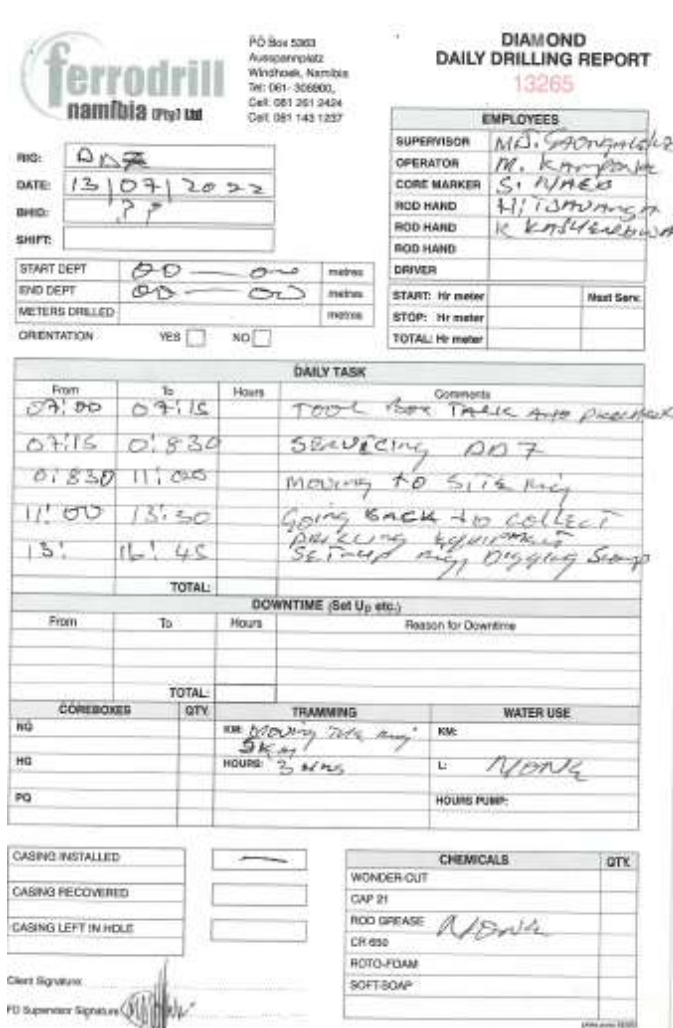 ferrodrill
namibia (Pty) Ltd
PO Box 5363
Ausspannplatz
Windhoek, Namibia
Tel: 061- 306900,
Cell: 081 261 2424
Cell: 081 143 1237
DIAMOND
DAILY DRILLING REPORT
13265
RIG:
DATE: 13|07|2022
BHID: ??
SHIFT:
EMPLOYEES
SUPERVISOR
OPERATOR M.
CORE MARKER S.
ROD HAND
ROD HAND K
ROD HAND
DRIVER
START DEPT 00 — 00 metres
END DEPT 00 — 00 metres
METERS DRILLED metres
ORIENTATION YES NO
START: Hr meter Next Serv.
STOP: Hr meter
TOTAL: Hr meter
DAILY TASK
From To Hours Comments
07:00 07:15 TOOL BOX TALK AND
07:15 0:830 SERVICING DD7
0:830 11:00 MOVING to SITE RIG
11:00 13:30 Going BACK to COLLECT
DRILLING EQUIPMENT
13: 16:45 SET-UP RIG, DIGGING Sump
TOTAL:
DOWNTIME (Set Up etc.)
From To Hours Reason for Downtime
TOTAL:
COREBOXES QTY TRAMMING WATER USE
NQ KM: Moving The Rig KM:
5KM
HQ HOURS: 3 HRS L: NONE
PQ HOURS PUMP:
CASING INSTALLED —
CASING RECOVERED
CASING LEFT IN HOLE
CHEMICALS QTY
WONDER-CUT
CAP 21
ROD GREASE NONE
CR 650
ROTO-FOAM
SOFT-SOAP
Client Signature
FD Supervisor Signature